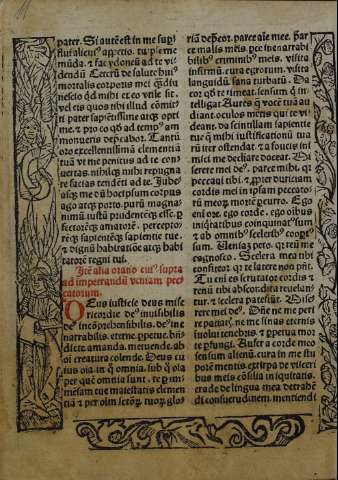 pater. Si autē est in me sup
flui alicuꝰ appetitio. tu preme
mūda. ⁊ fac ydoneū ad te vi
dendū. Ceterū de salute huiꝰ
mortalis corporis mei q̄mdiu
nescio qd mihi ex eo vtile sit.
vel eis quos
ti pater sapientissime atqz opti
me. ⁊ pro eo qd ad tempꝰ am
monueris depcabor. Tantū
oro excellentissimā clementiā
tuā vt me penitus ad te con
uertas. nihilqz mihi repugna
re facias tendēti ad te. Jube
asqz me dū hoc ipsum corpus
ago atqz porto. purū magna
nimū iustū prudentēqz esse. p
fectorēqz amatorē. perceptio
rēqz sapientēqz sapientie tue.
⁊ dignū habitatiōe atqz habi
tatorē regni tui.
Itē alia oratio eiꝰ supra
ad impetrandū veniam pec
catorum.
Deus iustitiae deus mise
ricordie deꝰ inuisibilis
deꝰ incōprehensibilis. deꝰ ine
narrabilis. eterne. ppetue. bn̄
dicte. amande. metuende. ab
oī creatura colende. Deus cu
ius oīa. in q̄ omnia. sub q̄ oīa
per quē omnia sunt. te p im
mēsam tue maiestatis clemen
tiā
riā depcor. parce aīe mee. par
ce malis meis. pce inenarrabi
bilibꝰ criminibꝰ meis. visita
infirmū. cura egrotum. visita
languidū. sana turbatū. Da
cor qd te timeat. sensum q̄ in
telligat. Aures q̄ vocē tuā au
diant. oculos meos qui te vi
deant. da scintillam sapientie
tue q̄ mihi iustificationū tua
rū iter ostendat. ⁊ a faucis ini
mici me declinare doceat. Mi
serere mei deꝰ. parce mihi. qz
peccaui tibi. ⁊ ppter duriciam
cordis mei in ipsam peccato
rū meoꝝ mortē pcurro. Ego
enī ore. ego corde. ego oībus
iniquitatibus coinquinatꝰ sum
⁊ ab omnibꝰ scelerībꝰ cooptꝰ
sum. Veniaz peto. qz reū me
cognosco. Scelera mea tibi
confiteor. qz te latere non pn̄t.
Tu eni es scrutator cordis ⁊
renū tibi abscondita reuelan
tur. ⁊ scelera patefiūt. Mise
rere mei deꝰ. Dn̄e ne me peri
re patiaꝝ. ne me sinas eternis
inuolui tenebris. ⁊ perpetua mor
te pfungi. Aufer a corde meo
sensum alienū. cura in me stu
porē mentis. extirpa de visceri
bus meis cōsilia iniquitatis.
erade de lingua mea detrahē
di consuetudinem. mentiendi